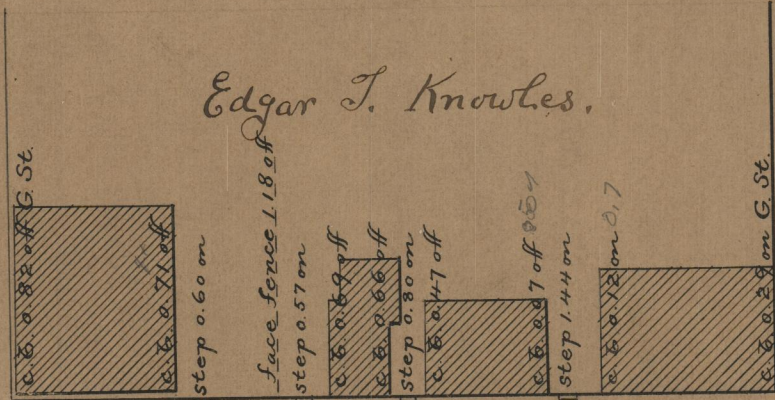 Edgar T. Knowles.
c.b. 0.82 off G. St.
c.b. 0.71 off
step 0.60 on
face fence 1.18 off
step 0.57 on
c.b. 0.69 off
c.b. 0.66 off
step 0.80 on
c.b. 0.47 off
c.b. 0.07 off
step 1.44 on
c.b. 0.12 on 0,7
c.b. 0.29 on G. St.